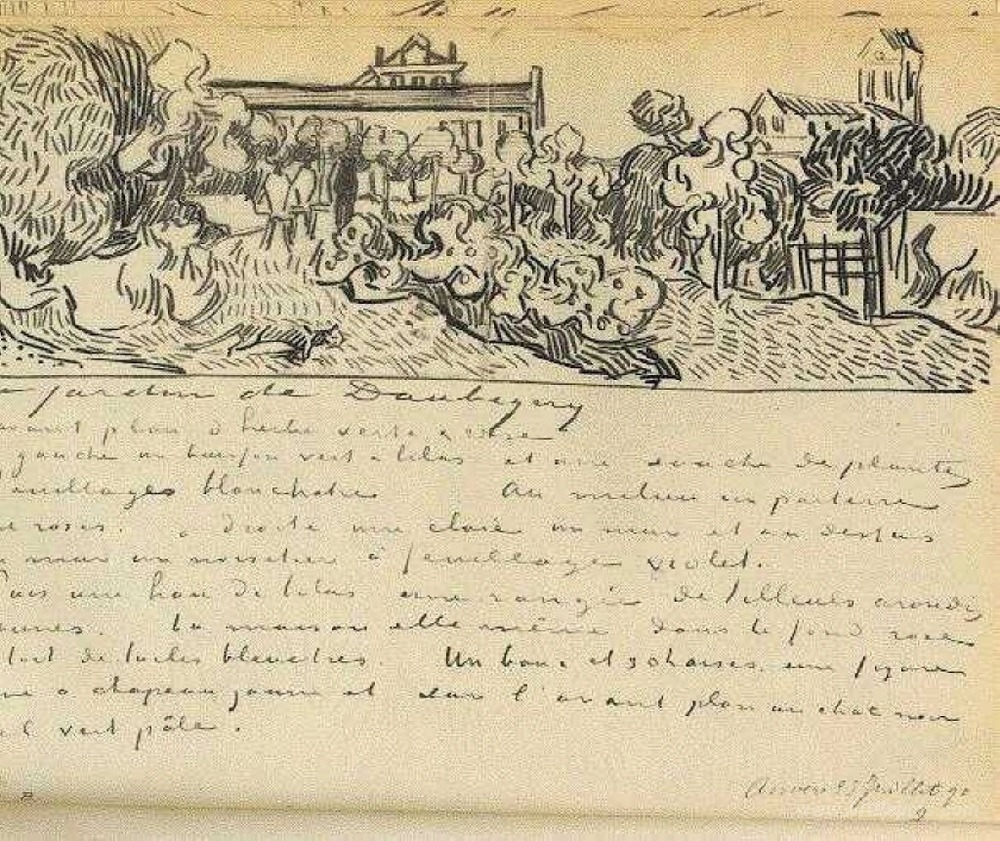 jardin de Daubigny
avant plan d'herbe verte & rose
gauche un buisson vert & lilas et une souche de plantes
feuillages blanchatres Au milieu un parterre
de roses. à droite une claie un mur et au dessus
mur un noisetier à feuillage violet.
Puis une haie de lilas une rangée de tilleuls arrondis
jaunes. La maison elle même dans le fond rose
toit de tuiles bleuatres. Un banc et 3 chaises, une figure
à chapeau jaune et sur l'avant plan un chat noir
vert pâle.
Auvers 23 Juillet 90
2